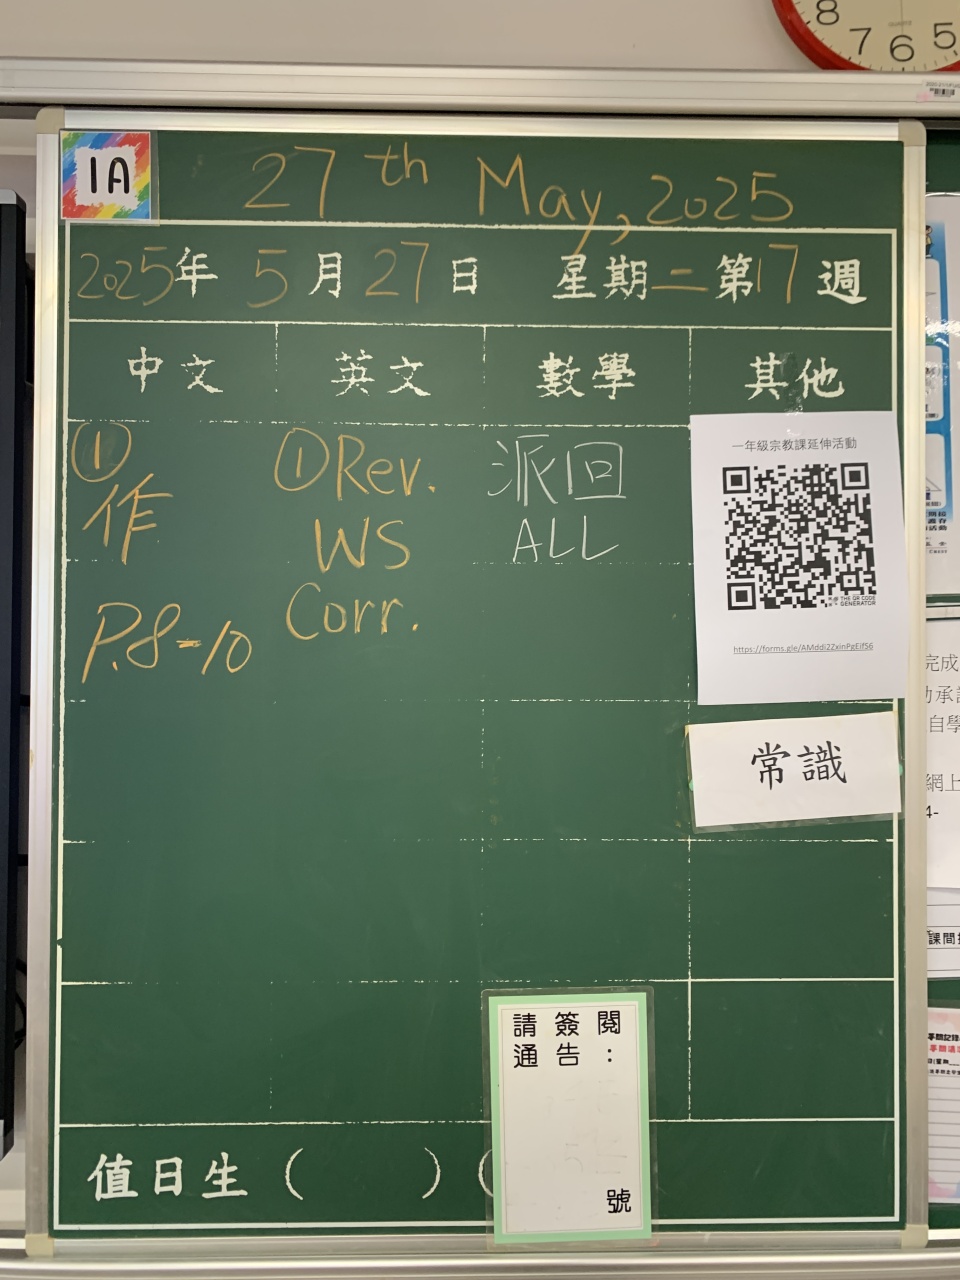 8 7 6 5
1A
27th May, 2025
2025年 5月27日 星期二第17週
中文 英文 數學 其他
① 作 P.8-10
① Rev. WS Corr.
派回 ALL
一年級宗教課延伸活動
THE QR CODE GENERATOR
https://forms.gle/AMddi2ZxinPgEif56
常識
請簽閱
通告：
號
值日生（ ）（
完成
自學
網上
4-
課間